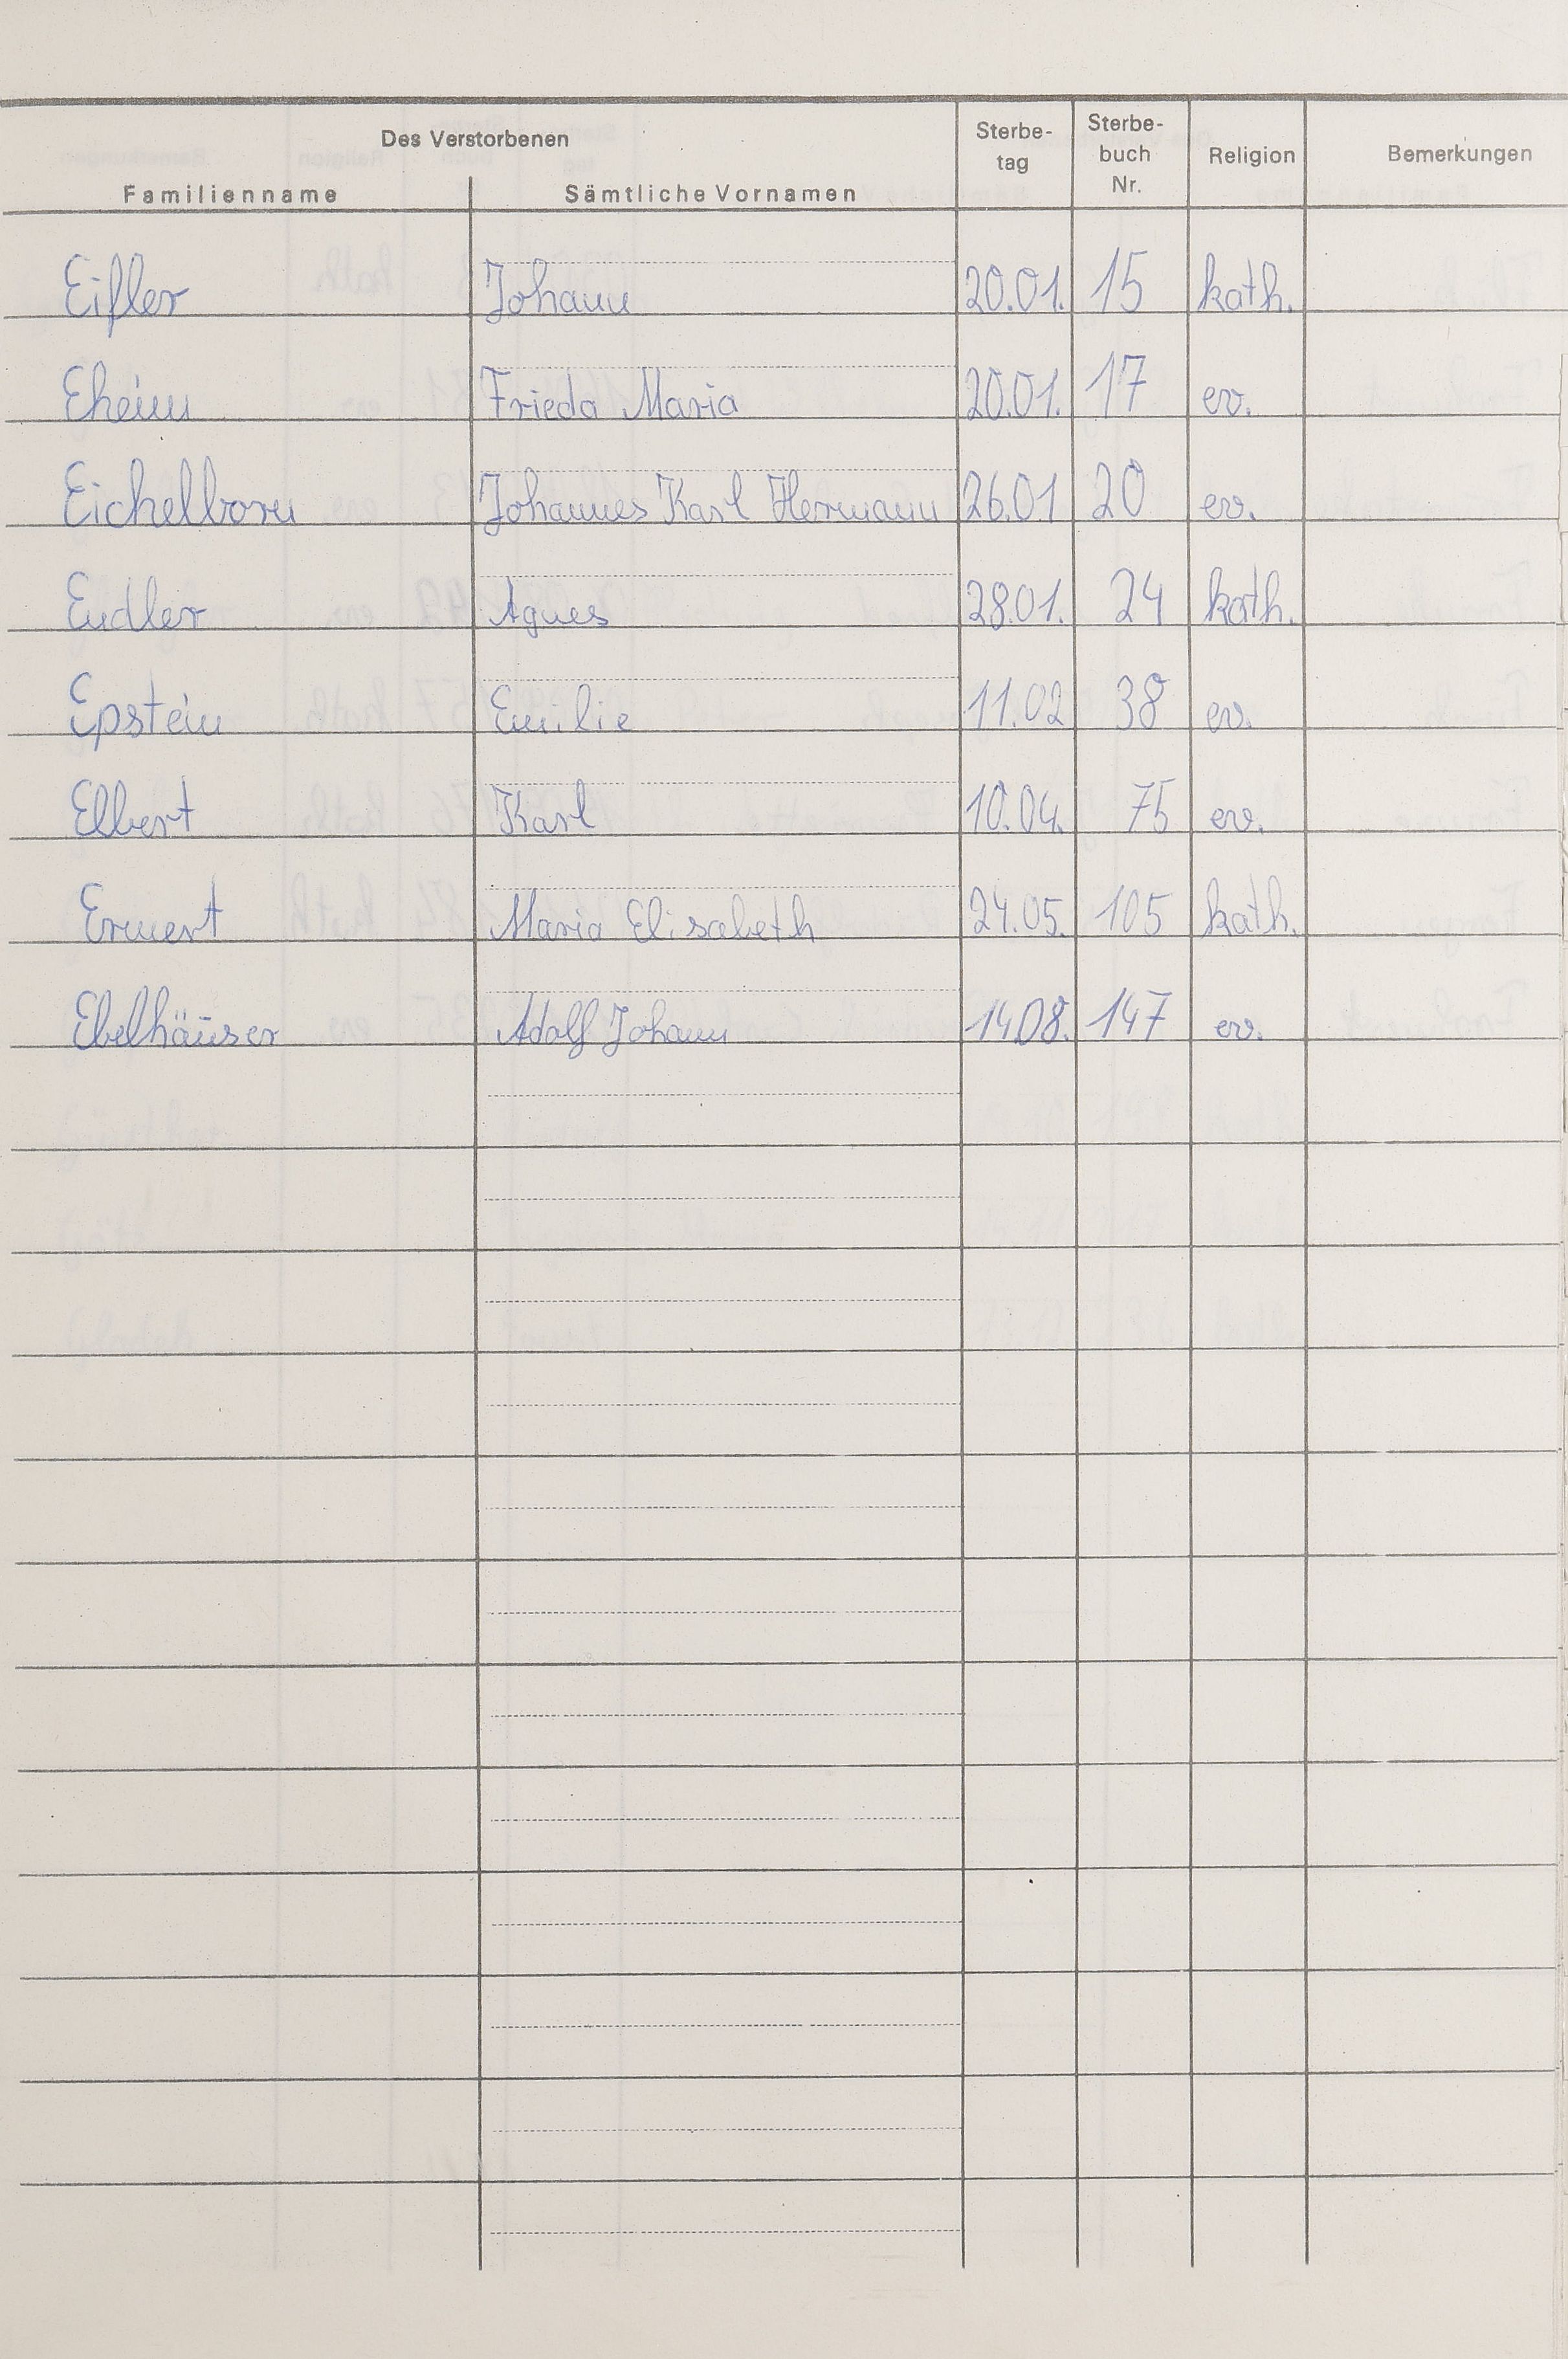 Des Verstorbenen
Familienname Sämtliche Vornamen Sterbe- tag Sterbe- buch Nr. Religion Bemerkungen
Eifler Johann 20.01. 15 kath.
Eheim Frieda Maria 20.01. 17 ev.
Eichelborn Johannes Karl Hermann 26.01 20 ev.
Endler Agnes 28.01. 24 kath.
Epstein Emilie 11.02 38 ev.
Elbert Karl 10.04. 75 ev.
Ermert Maria Elisabeth 24.05. 105 kath.
Ebelhäuser Adolf Johann 14.08. 147 ev.